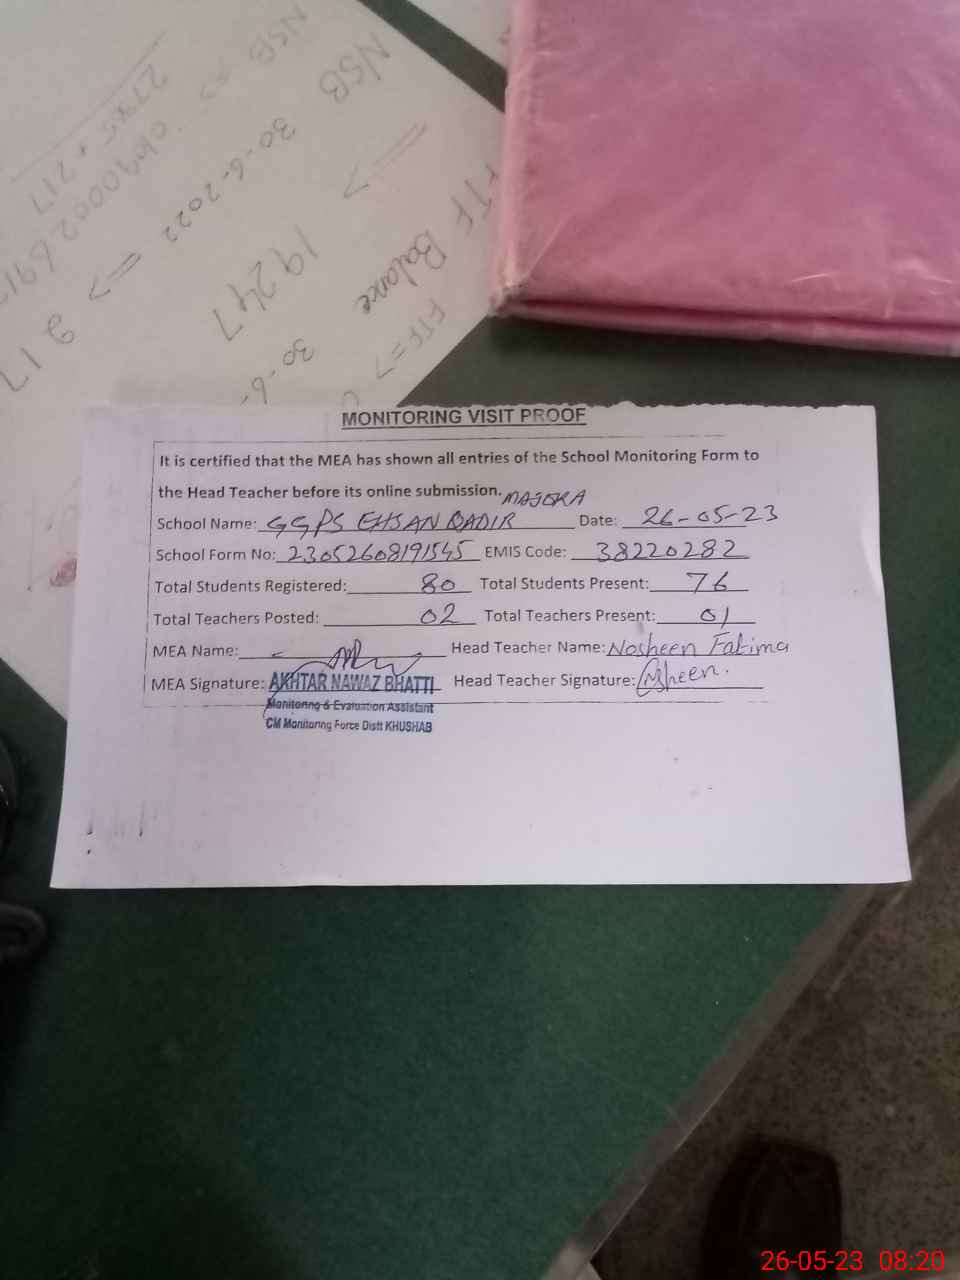 NSB
NSB =>
30-6-2022 => 217
27985 + 217
19247
FTF Balance
30-6-
FTF =>
MONITORING VISIT PROOF
It is certified that the MEA has shown all entries of the School Monitoring Form to
the Head Teacher before its online submission.
MAJOKA
School Name: GGPS EHSAN QADIR Date: 26-05-23
School Form No: 23052608191545 EMIS Code: 38220282
Total Students Registered: 80 Total Students Present: 76
Total Teachers Posted: 02 Total Teachers Present: 01
MEA Name: Head Teacher Name: Nosheen Fatima
MEA Signature: AKHTAR NAWAZ BHATTI Head Teacher Signature: Nsheen.
Monitoring & Evaluation Assistant
CM Monitoring Force Distt KHUSHAB
26-05-23 08:20